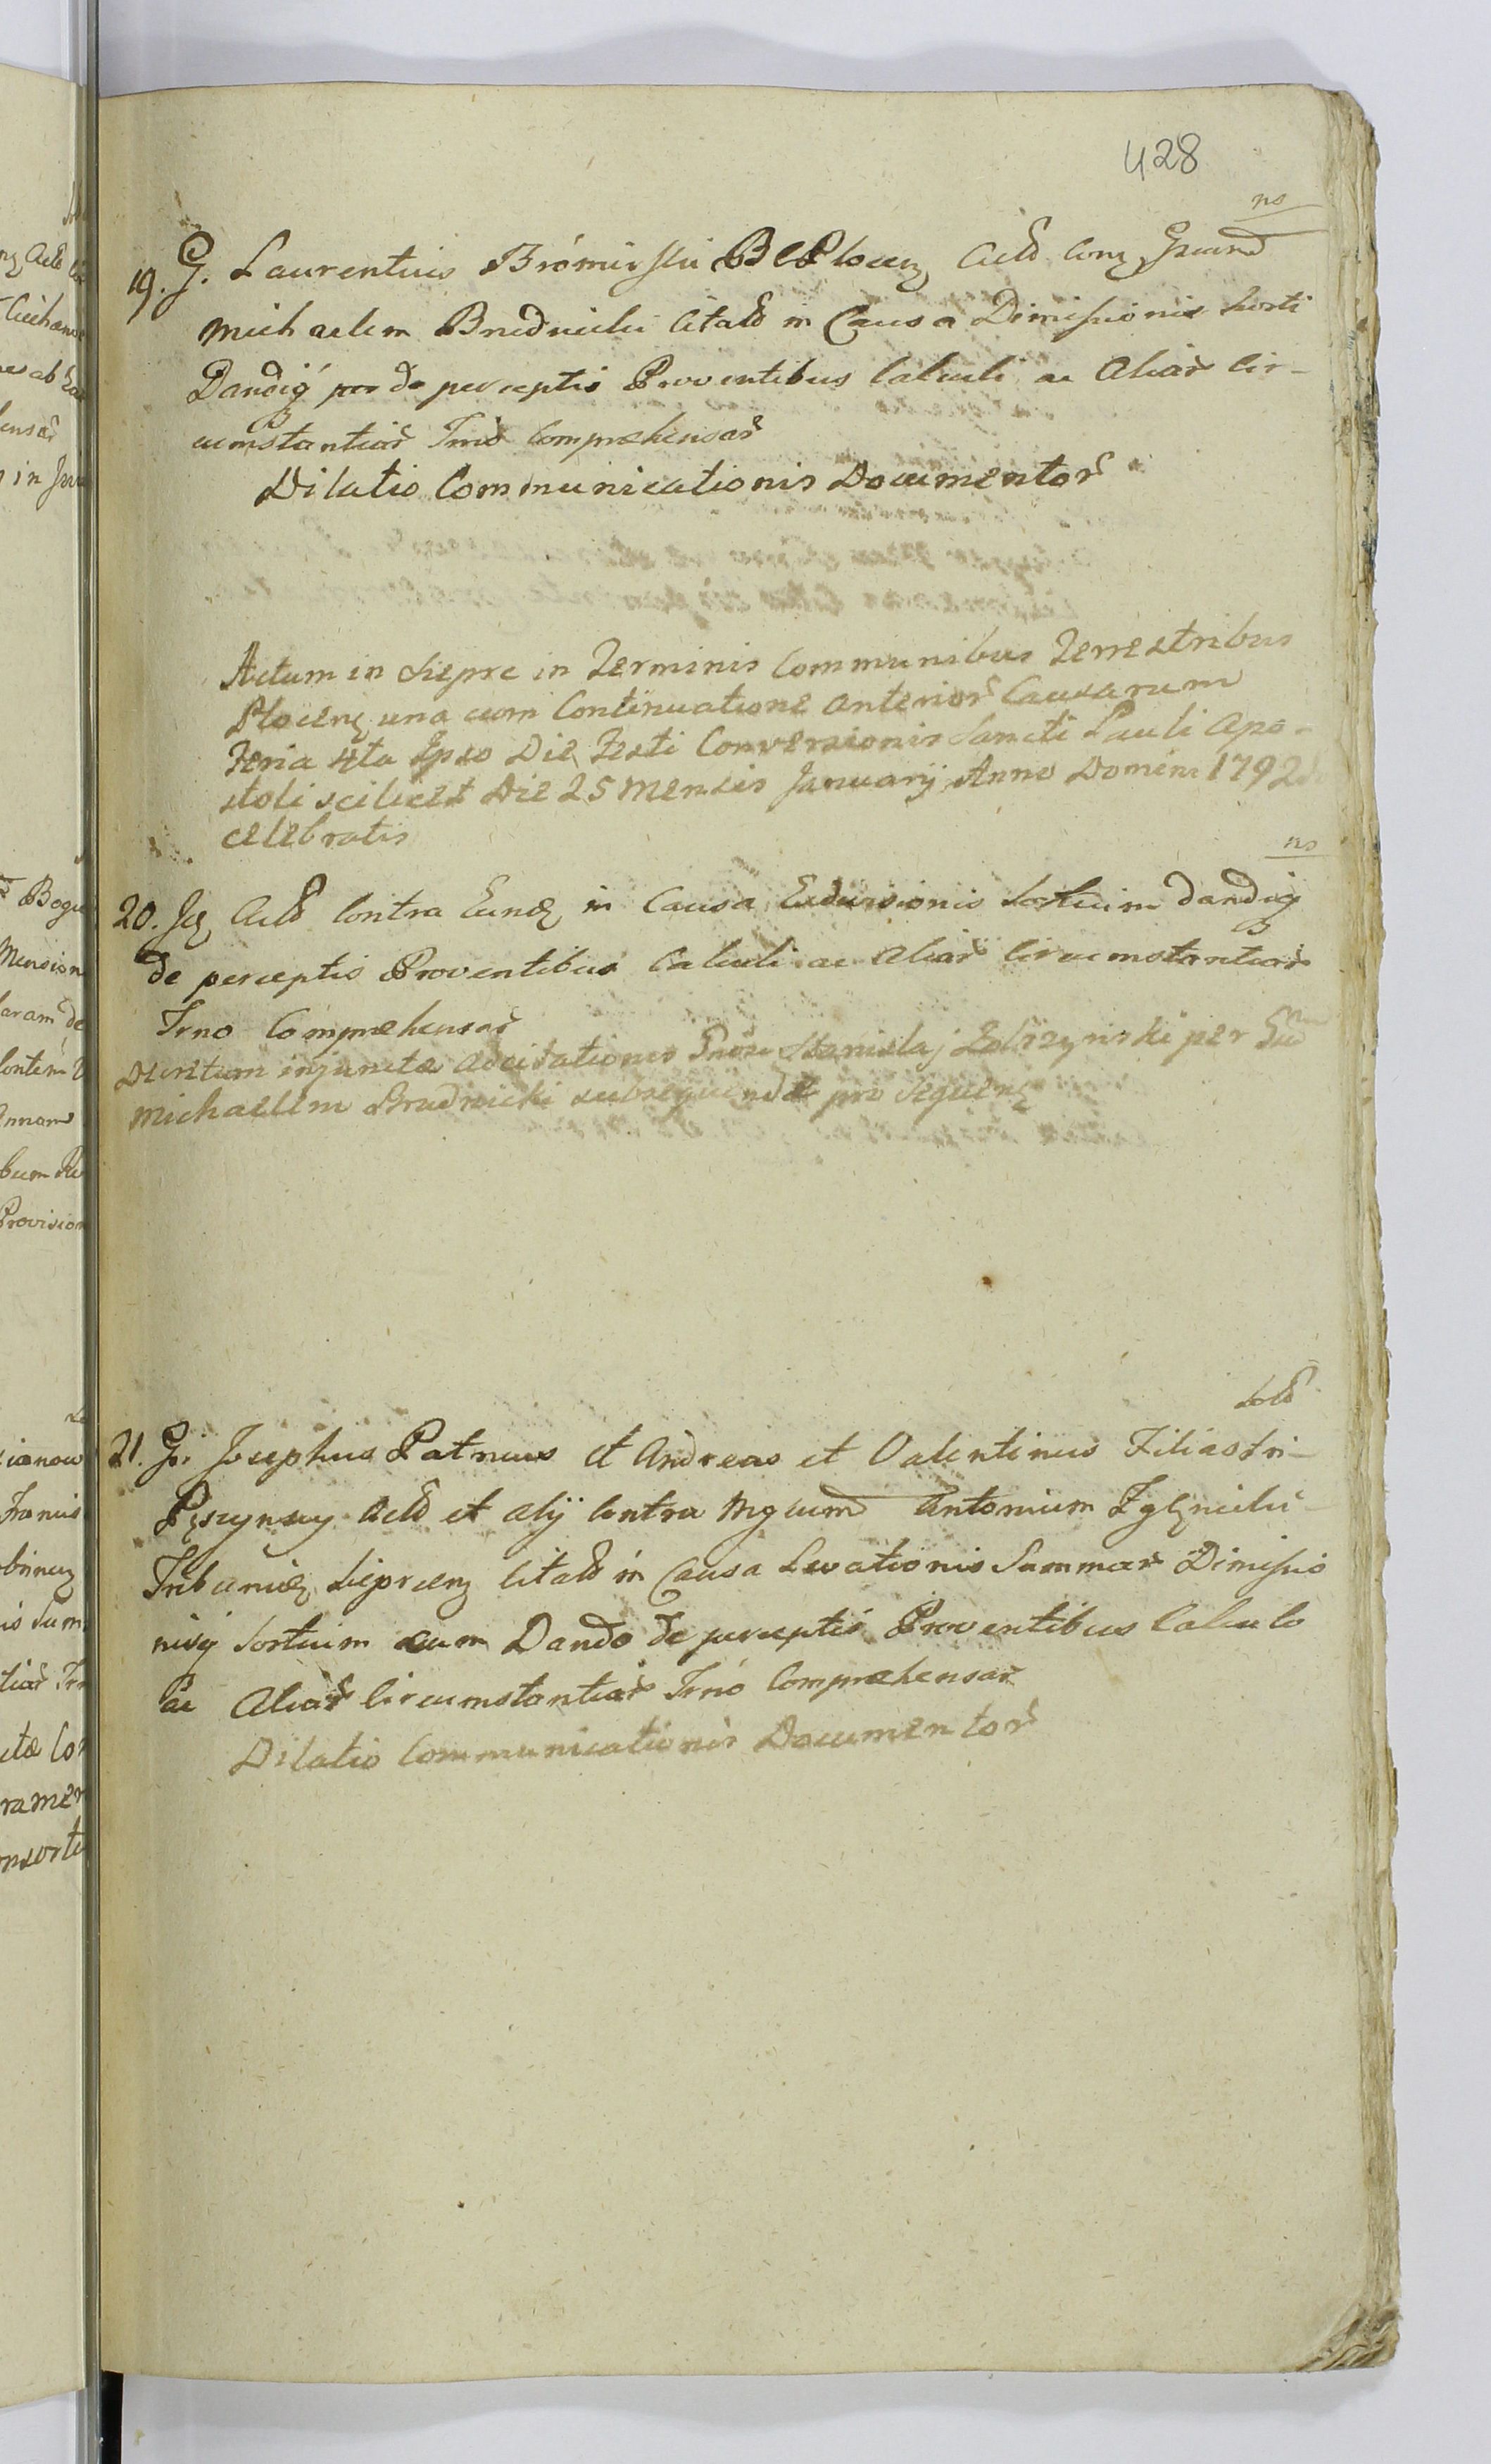 428
ns
19. G. Laurentius Bromirski B C Plocen Actd Conz Grum̄d
Michaelem Brudnicki Citatd in Causa Dimissionis Sorti
Dandiq́ de perceptis Proventibus Calculi ac Aliar̃ Cir-
cumstantiar̃ Trnō Compræhensar̃
Dilatio Communicationis Documentor̃
Actum in Sieprc in Terminis Communibus Terrestribus
Plocenz una cum Continuatione anterior̃ Causarum
Feria 4ta Ipso Die Festi Conversionis Sancti Pauli Apo-
stoli scilicet Die 25 Mensis Januarij Anno Domini 1792do
celebratis
ns
20. Jdz Actd Contra Eundz in Causa Sortium dandiq
de perceptis Proventibus Calculi ac Aliar̃ Circumstantiar̃
Trno Compræhensar̃
Decretum injunctæ adcitationis Stanislaj per Gum̄d
Michaelem Brudnicki subsequendæ pro sequenz
Sold
21. G. Josephus Patruus et Andreas et Valentinus Filiastri-
Pęszynscy Actd et Alij Contra Mgcum̄d Antonium Zglenicki
Tribunidz Sieprcenz Citatd in Causa Levationis Summar̃ Dimissio
nisq Sortium cum Dando de perceptis Proventibus Calculo
ac Aliar̃ Circumstantiar̃ Trnō Compræhensar̃
Dilatio Communicationis Documentor̃